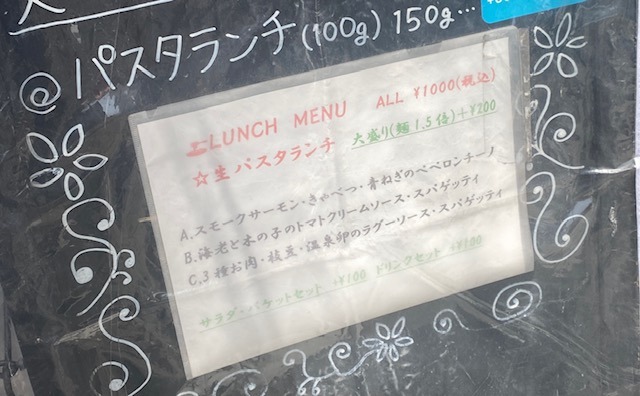 ◎パスタランチ(100g) 150g...
LUNCH MENU ALL ¥1000(税込)
☆生パスタランチ 大盛り(麺1.5倍)+¥200
A.スモークサーモン・きゃべつ・青ねぎのペペロンチーノ
B.海老と木の子のトマトクリームソース・スパゲッティ
C.3種お肉・枝豆・温泉卵のラグーソース・スパゲッティ
サラダ・バケットセット +¥100 ドリンクセット +¥100